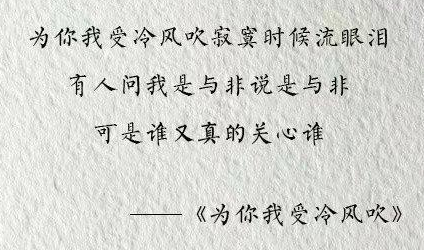 为你我受冷风吹寂寞时候流眼泪
有人问我是与非说是与非
可是谁又真的关心谁
——《为你我受冷风吹》